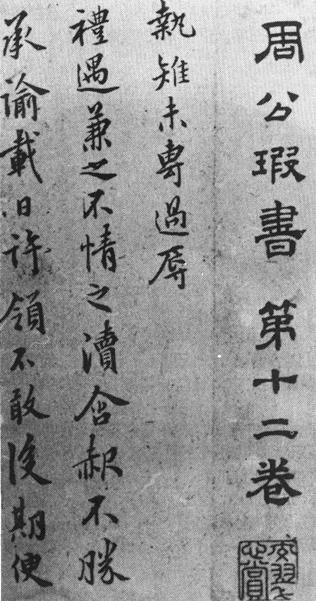 周公瑕書 第十二卷
執雉未專過辱
禮遇兼之不情之瀆含赧不勝
承諭載日許領不敢後期使